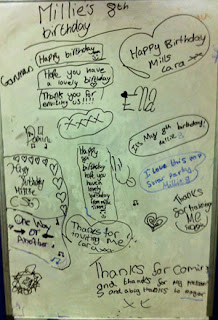 Millie's 8th
birthday
Happy birthday
Hope you have
a lovely birthday
Thank you for
inviting us!!!!
Happy Birthday
Mills
Cara xx
xxxx
Ella
It's My 8th birthday!
Millie
I love this pop
Star Party
Millie 8
Happy
Birthday
Millie
One Way
or
Another
Happy
birthday
Hope you
have
lovely
birthday
Thanks for
inviting me!
Cara xx
Thanks
for inviting
Me
Thanks for coming
and thanks for my presents